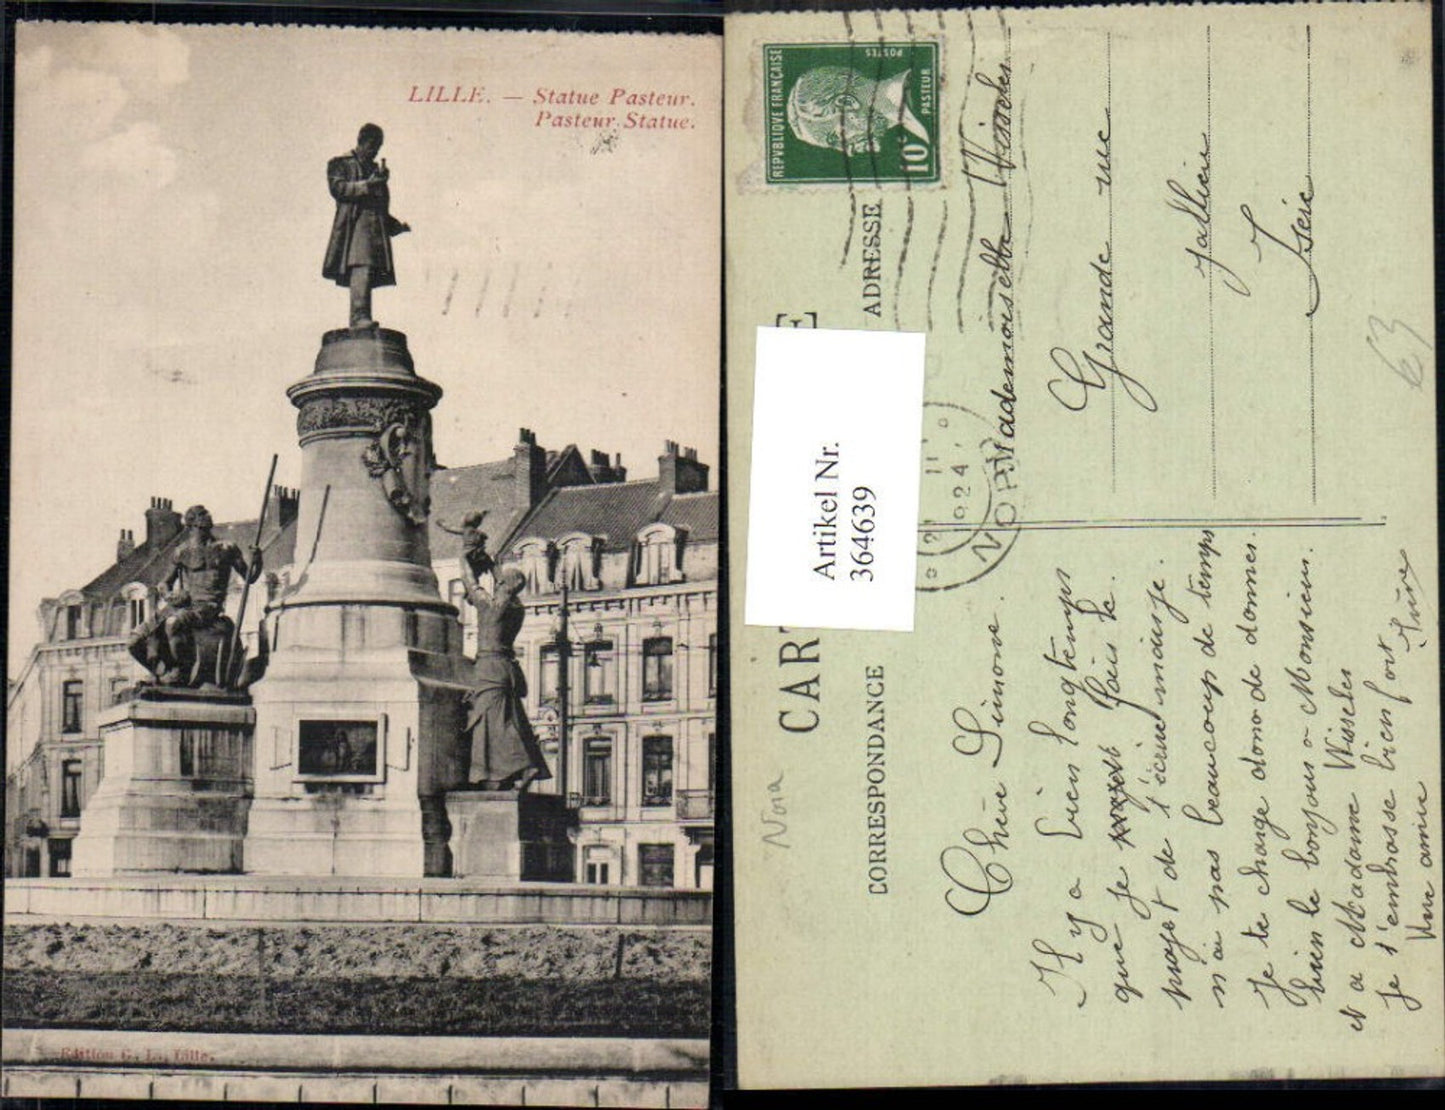 LILLE. — Statue Pasteur.
Pasteur Statue.
Edition G. L., Lille.
REPVBLIQUE FRANÇAISE
POSTES
PASTEUR
10c
Artikel Nr.
364639
CART
ADRESSE
Mademoiselle Wissler
Grande rue
Jallieu
Isère
€3
11
1924
Nora
CORRESPONDANCE
Chère Simone.
Il y a bien longtemps
que je fais le
projet de t'écrire mais je
n'ai pas beaucoup de temps
Je te charge donc de donner
bien le bonjour a Monsieur
et a Madame Wissler
Je t'embrasse bien fort
Une amie